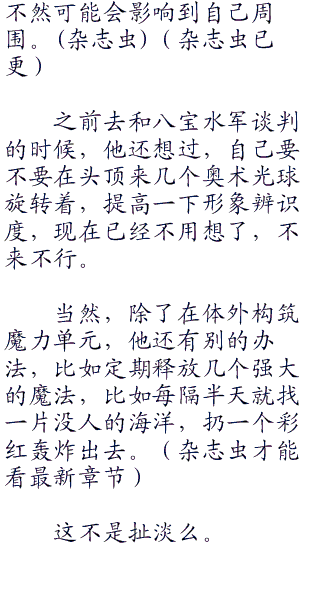 不然可能会影响到自己周
围。(杂志虫)（杂志虫已
更）
之前去和八宝水军谈判
的时候，他还想过，自己要
不要在头顶来几个奥术光球
旋转着，提高一下形象辨识
度，现在已经不用想了，不
来不行。
当然，除了在体外构筑
魔力单元，他还有别的办
法，比如定期释放几个强大
的魔法，比如每隔半天就找
一片没人的海洋，扔一个彩
红轰炸出去。（杂志虫才能
看最新章节）
这不是扯淡么。